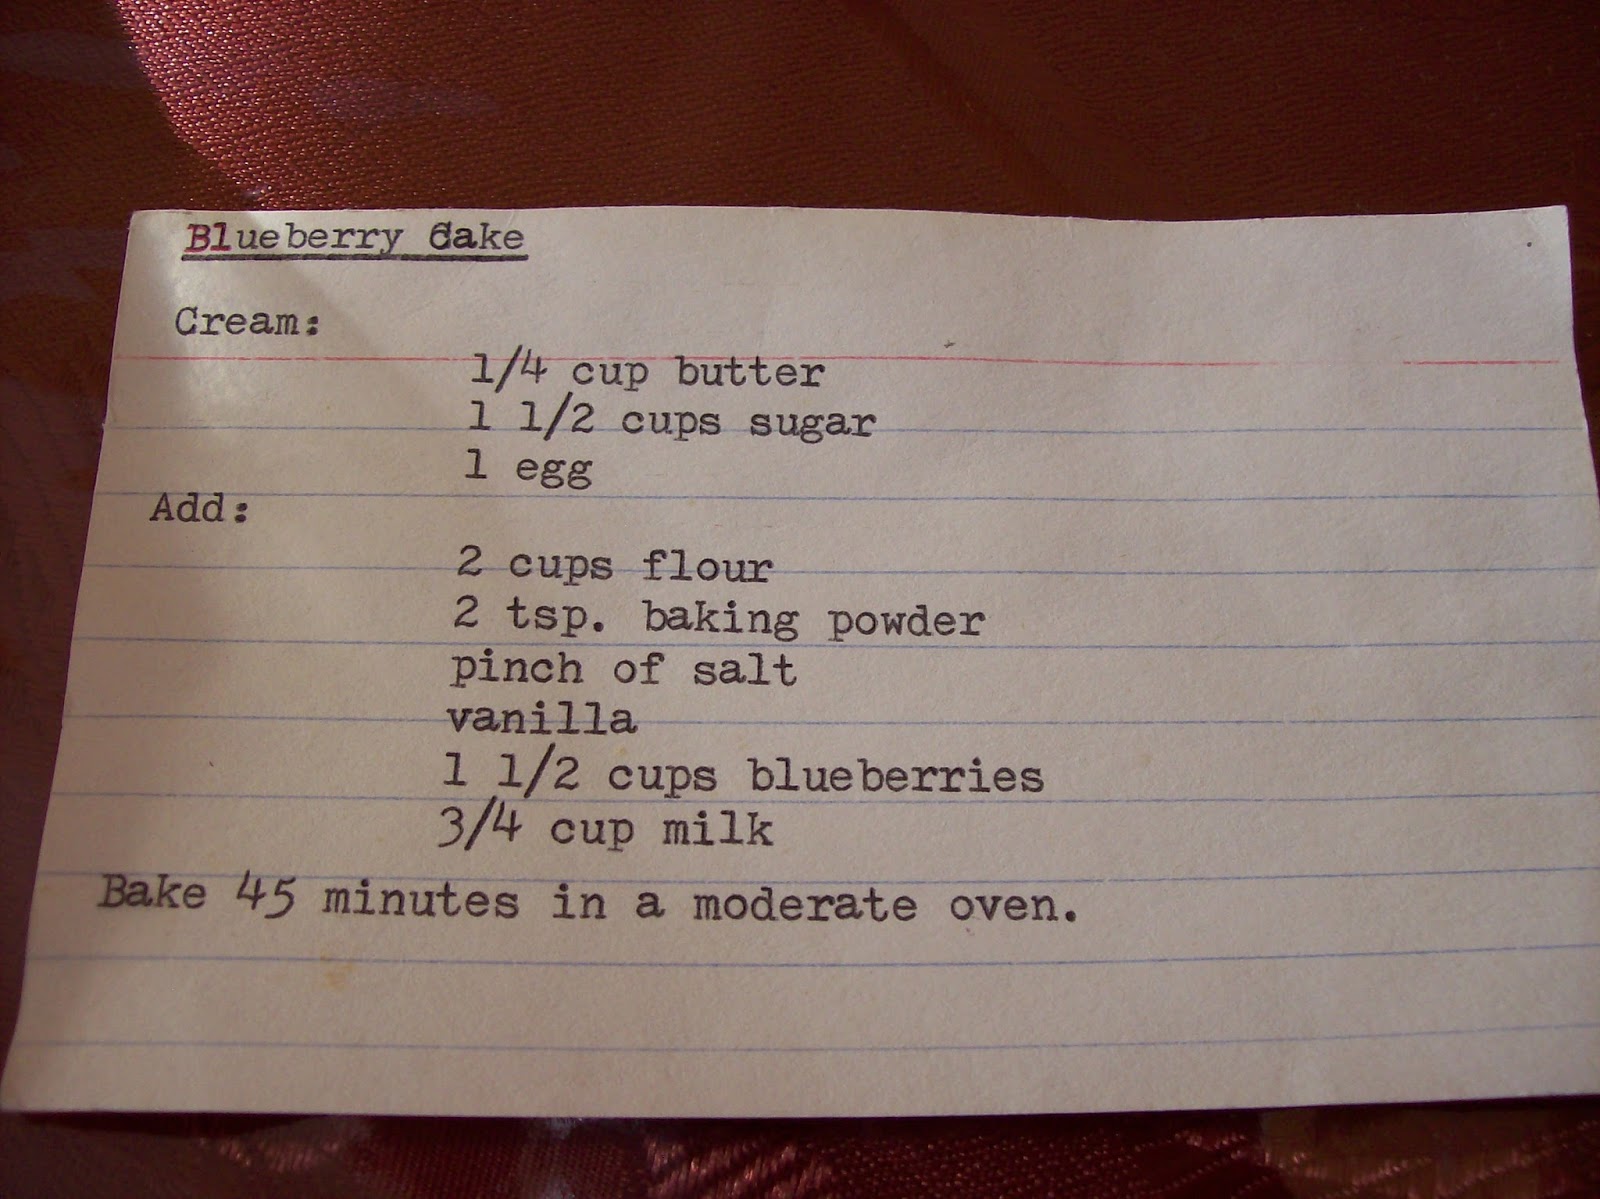 Blueberry Cake
Cream:
1/4 cup butter
1 1/2 cups sugar
1 egg
Add:
2 cups flour
2 tsp. baking powder
pinch of salt
vanilla
1 1/2 cups blueberries
3/4 cup milk
Bake 45 minutes in a moderate oven.